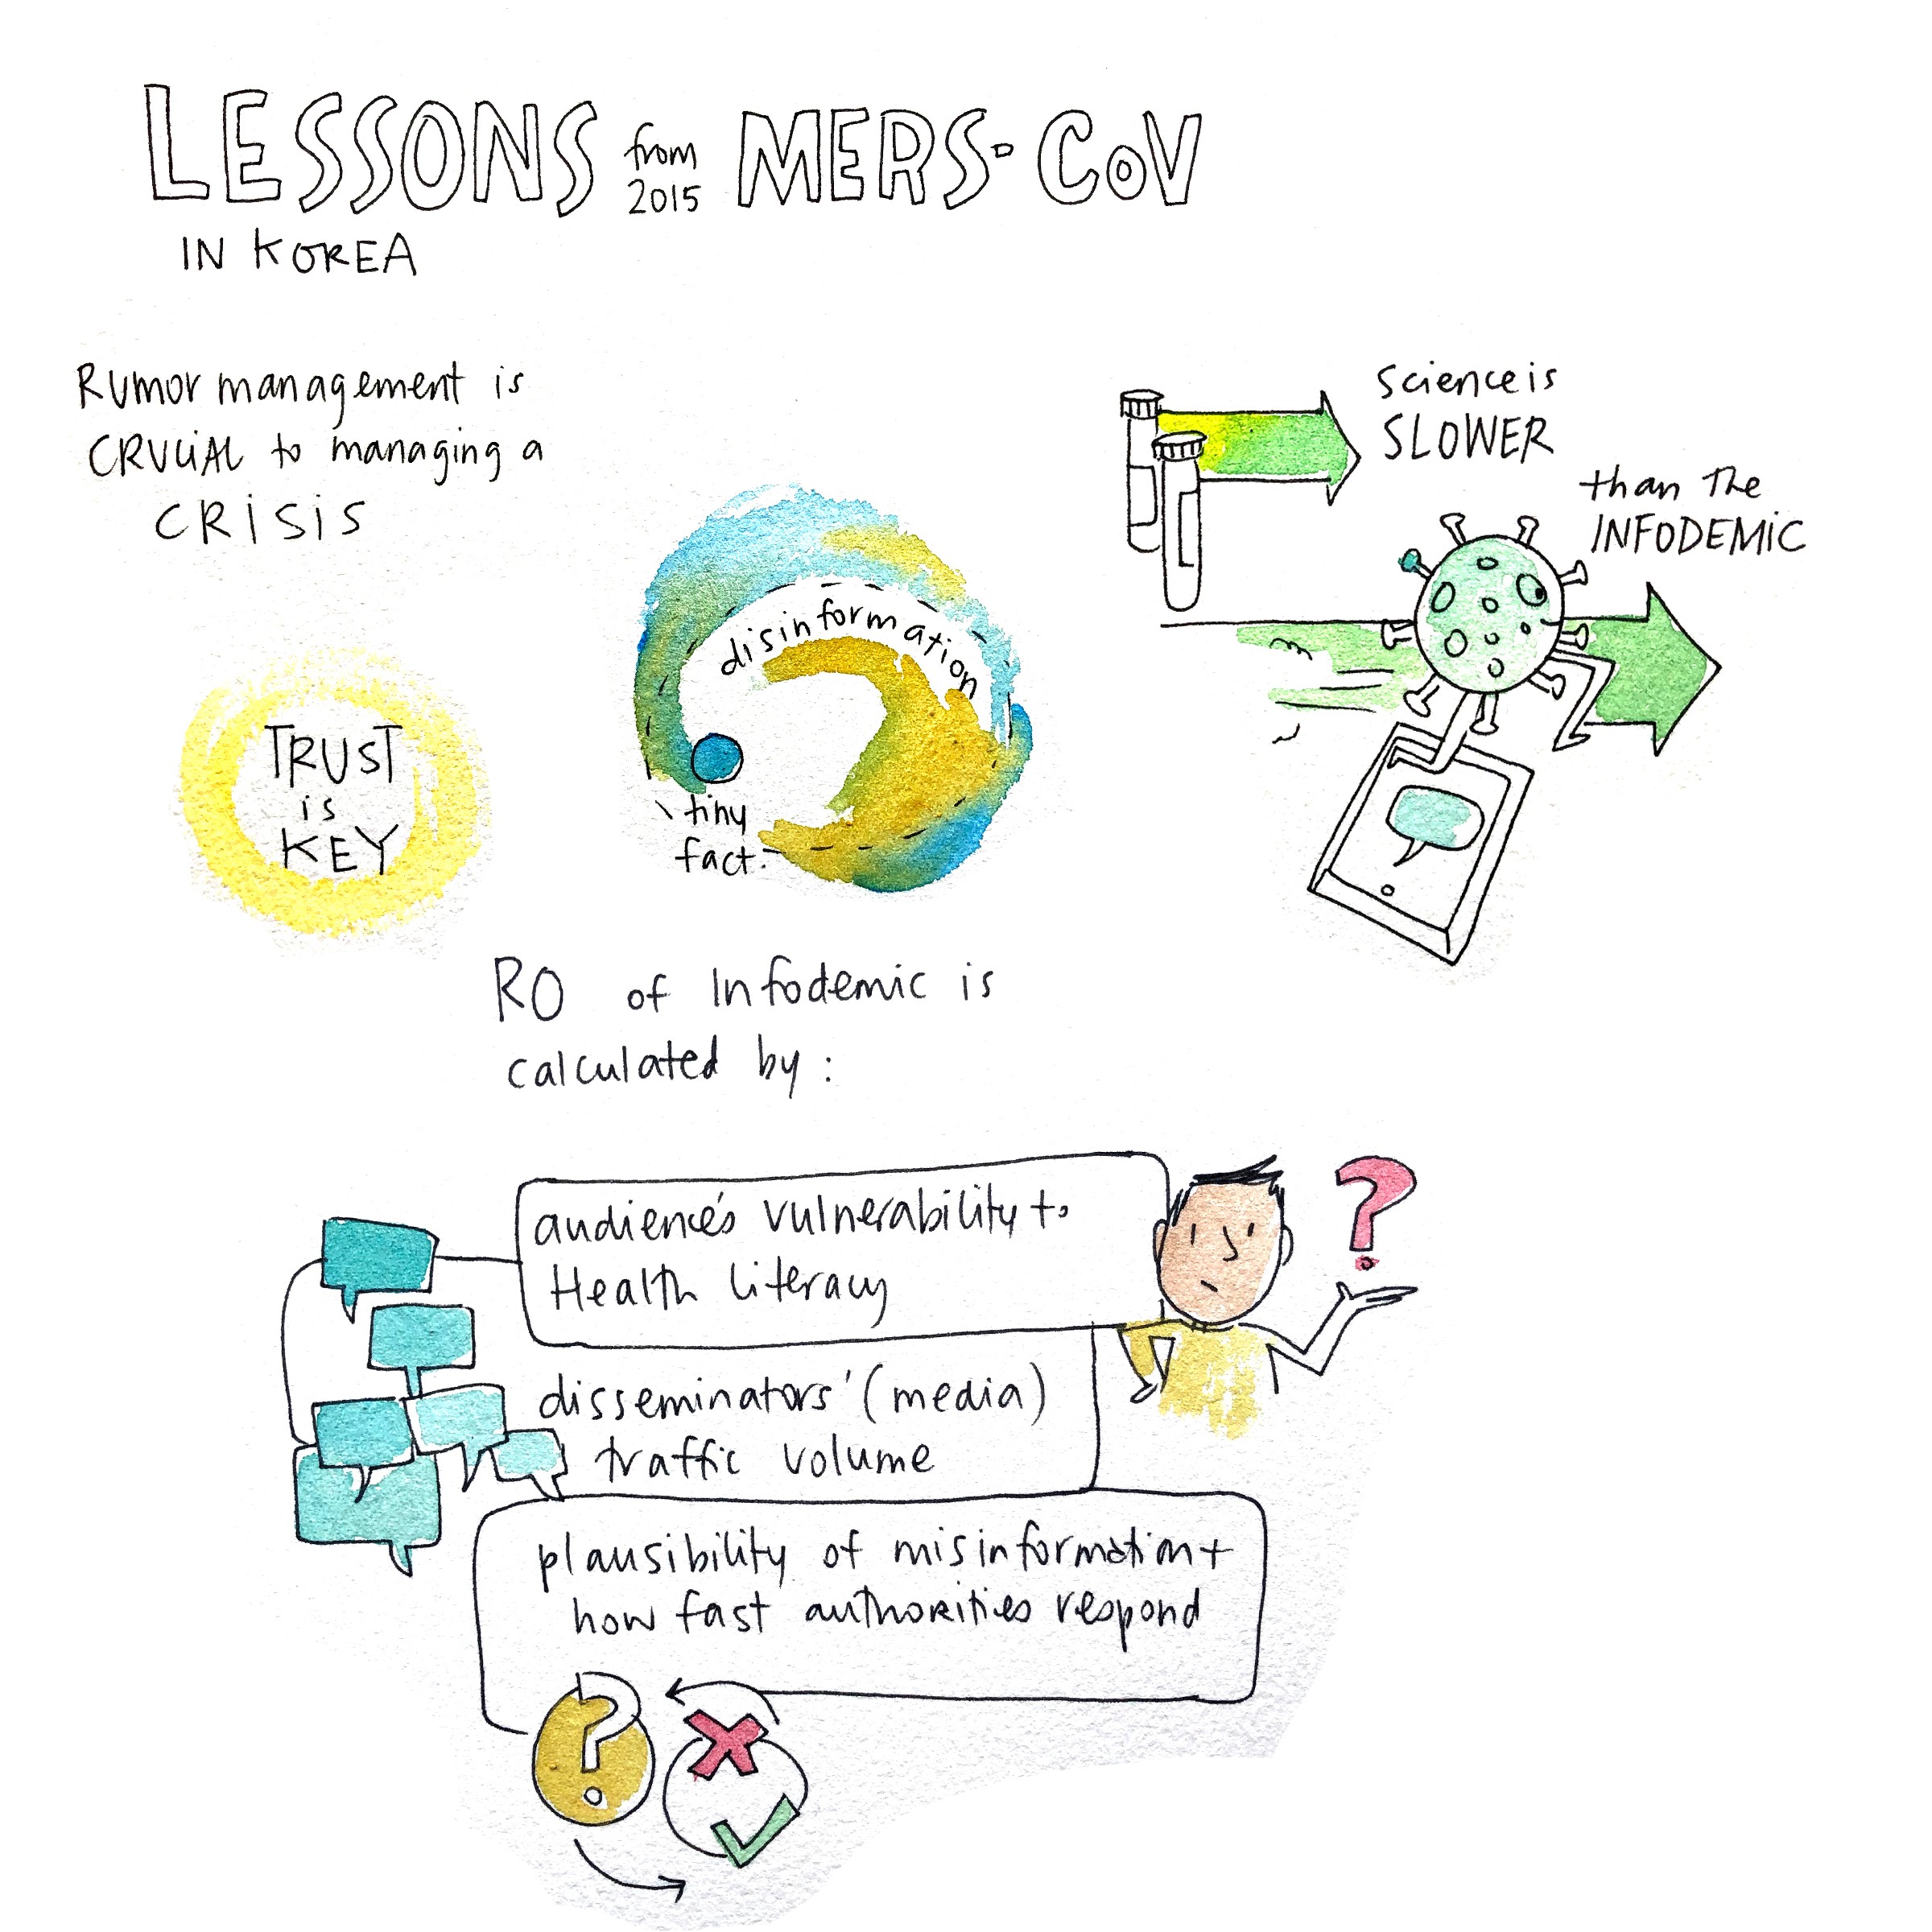 LESSONS from 2015 MERS-CoV
IN KOREA
Rumor management is
CRUCIAL to managing a
CRISIS
TRUST
is
KEY
disinformation
tiny
fact
Science is
SLOWER
than the
INFODEMIC
RO of Infodemic is
calculated by:
audience's vulnerability to
Health literacy
disseminators' (media)
traffic volume
plausibility of misinformation +
how fast authorities respond
?
?